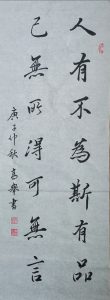 人有不為斯有品
己無所得可無言
庚子仲秋 書